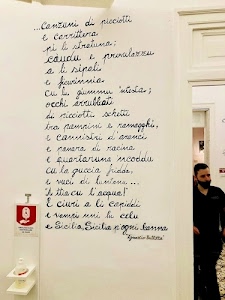 ...Canzuni di picciotti
e carritteri
pi li stratuna;
càudu e pruvulazzu
a li sipali
e fiurinnia
cu li giummi 'ntesta;
occhi arrubbati
di picciotti schetti
tra pampini e ramegghi,
e cannistri d'aranci
e panara di racina
e quartaruna 'ncoddu
cu la guccia fridda,
e vuci di luntanu...
A tia cu l'acqua!
E ciuri a li capiddi
e vampi 'nni lu celu
e Sicilia, Sicilia p'ogni banna
Ignazio Buttitta